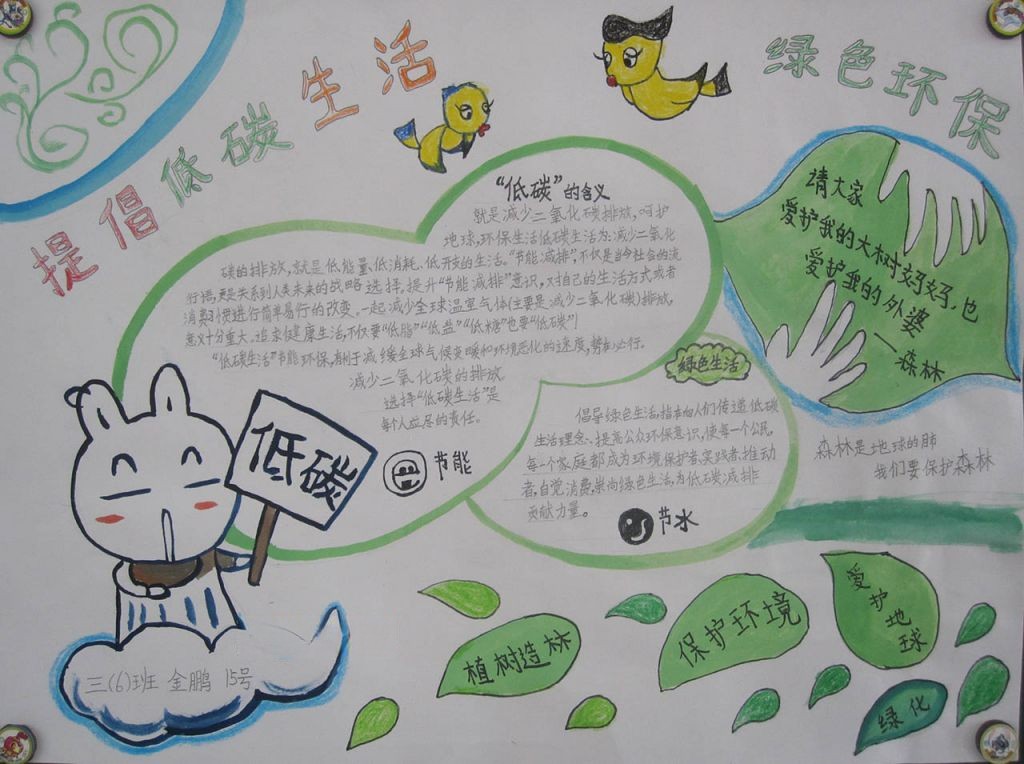 提倡低碳生活
绿色环保
“低碳”的含义
就是减少二氧化碳排放,呵护
地球,环保生活低碳生活为:减少二氧化
碳的排放,就是低能量、低消耗、低开支的生活。“节能减排”,不仅是当今社会的流
行语,更是关系到人类未来的战略选择,提升“节能减排”意识,对自己的生活方式或者
消费习惯进行简单易行的改变,一起减少全球温室气体(主要是减少二氧化碳)排放,
意义十分重大。追求健康生活,不仅要“低脂”“低盐”“低糖”也要“低碳”!
“低碳生活”节能环保,利于减缓全球气候变暖和环境恶化的速度,势在必行。
减少二氧化碳的排放
选择“低碳生活”是
每个人应尽的责任。
节能
绿色生活
倡导绿色生活,指在向人们传递低碳
生活理念、提高公众环保意识,使每一个公民,
每一个家庭都成为环境保护者,实践者,推动
者,自觉消费,崇向绿色生活,为低碳减排
贡献力量。
节水
请大家
爱护我的大树妈妈,也
爱护我的外婆
——森林
森林是地球的肺
我们要保护森林
低碳
植树造林
保护环境
爱护地球
绿化
三(6)班 金鹏 15号